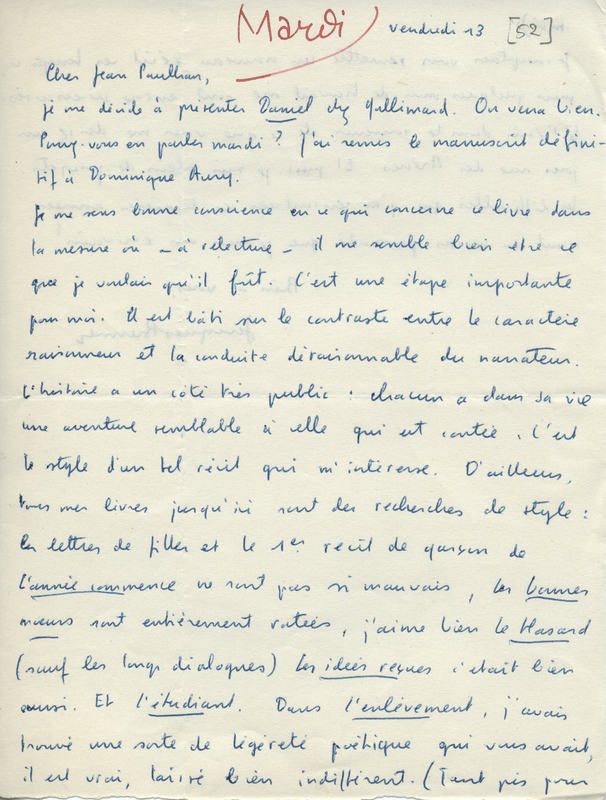 Mardi vendredi 13 [52]
Cher Jean Paulhan,
je me décide à présenter Daniel chez Gallimard. On verra bien.
Pourrez-vous en parler mardi ? J'ai remis le manuscrit défini-
tif à Dominique Aury.
Je me sens bonne conscience en ce qui concerne ce livre dans
la mesure où – à relecture – il me semble bien être ce
que je voulais qu'il fût. C'est une étape importante
pour moi. Il est bâti sur le contraste entre le caractère
raisonneur et la conduite déraisonnable du narrateur.
L'histoire a un côté très public : chacun a dans sa vie
une aventure semblable à celle qui est contée. C'est
le style d'un tel récit qui m'intéresse. D'ailleurs,
tous mes livres jusqu'ici sont des recherches de style :
les lettres de filles et le 1er récit de garçon de
l'année commence ne sont pas si mauvais, les bonnes
mœurs sont entièrement ratées, j'aime bien le Hasard
(sauf les longs dialogues) les idées reçues c'était bien
aussi. Et l'étudiant. Dans l'enlèvement, j'avais
trouvé une sorte de légèreté poétique qui vous avait,
il est vrai, laissé bien indifférent. (Tant pis pour